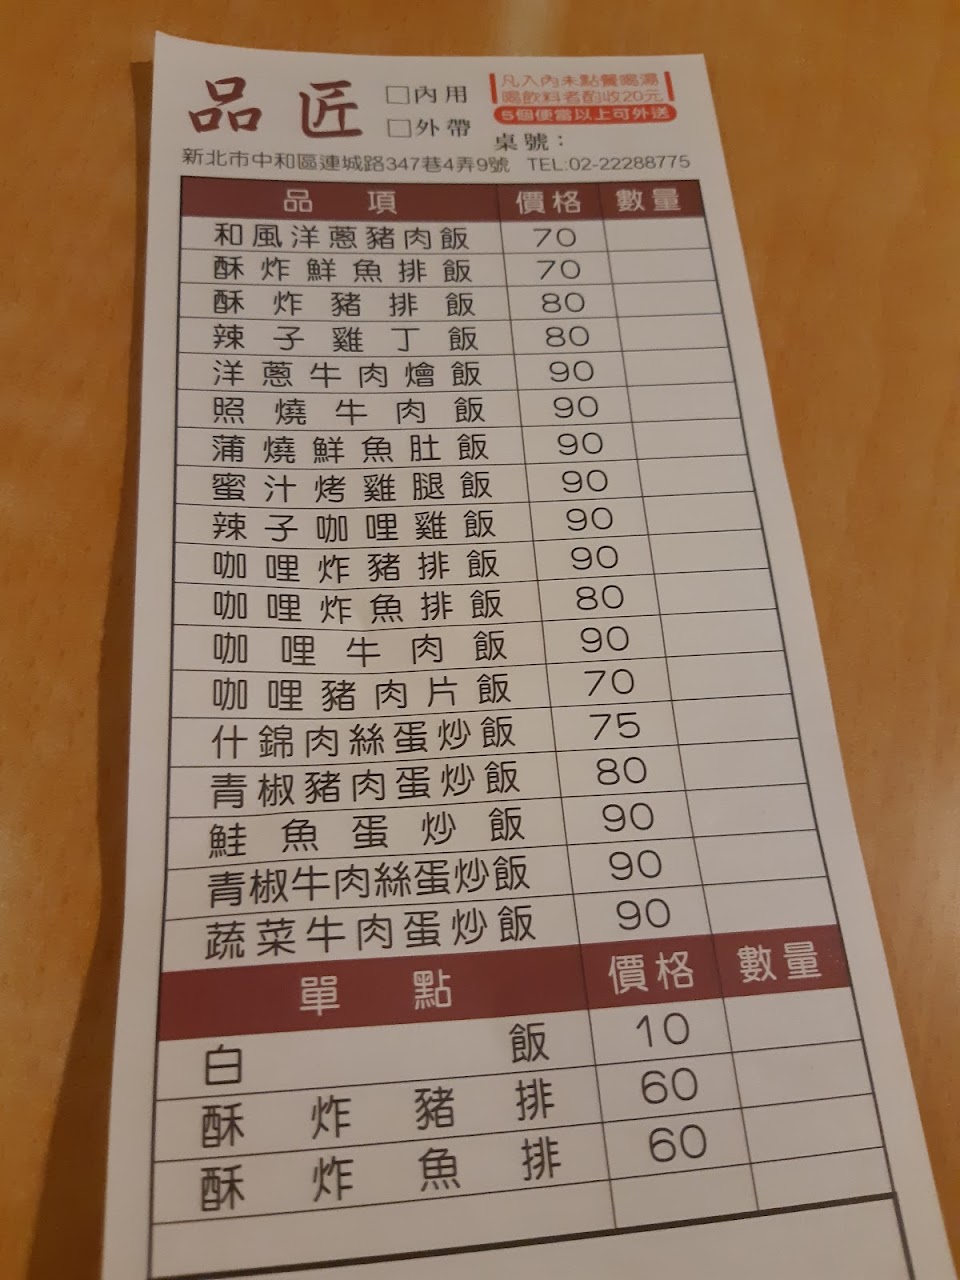 品匠
□內用
□外帶
凡入內未點餐喝湯
喝飲料者酌收20元
5個便當以上可外送
桌號：
新北市中和區連城路347巷4弄9號 TEL:02-22288775
品項 價格 數量
和風洋蔥豬肉飯 70
酥炸鮮魚排飯 70
酥炸豬排飯 80
辣子雞丁飯 80
洋蔥牛肉燴飯 90
照燒牛肉飯 90
蒲燒鮮魚肚飯 90
蜜汁烤雞腿飯 90
辣子咖哩雞飯 90
咖哩炸豬排飯 90
咖哩炸魚排飯 80
咖哩牛肉飯 90
咖哩豬肉片飯 70
什錦肉絲蛋炒飯 75
青椒豬肉蛋炒飯 80
鮭魚蛋炒飯 90
青椒牛肉絲蛋炒飯 90
蔬菜牛肉蛋炒飯 90
單點 價格 數量
白飯 10
酥炸豬排 60
酥炸魚排 60